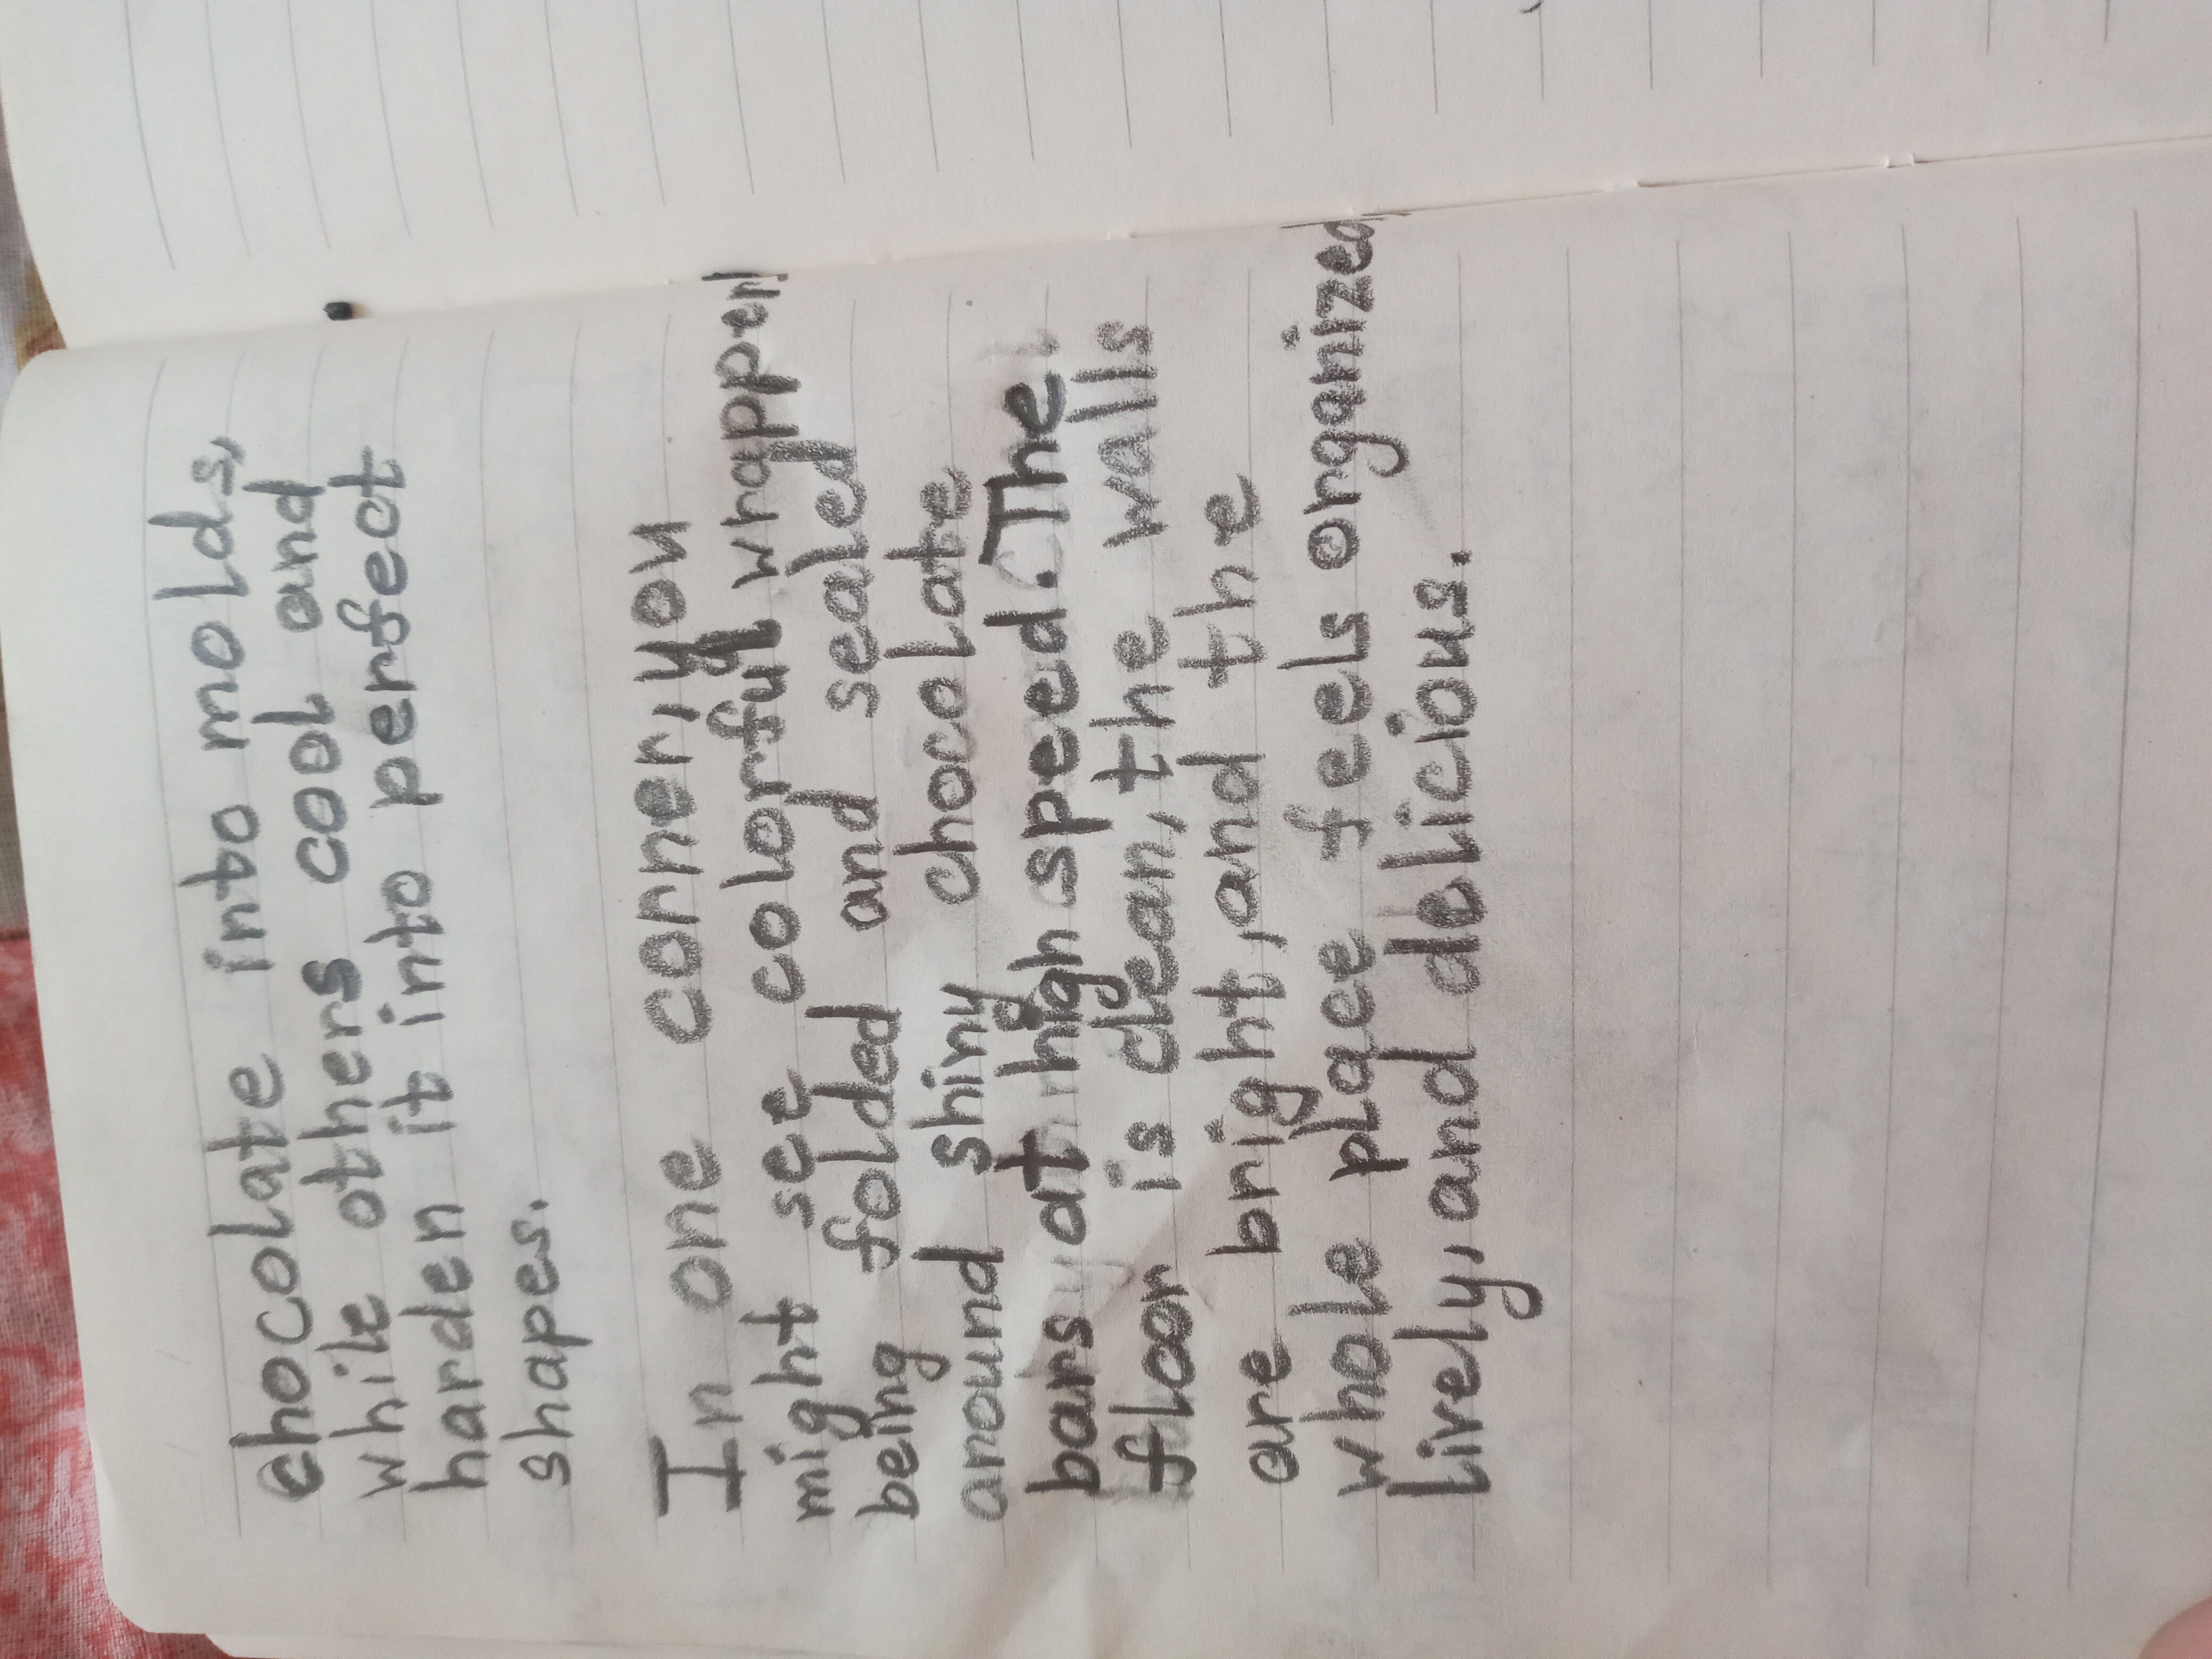 chocolate into molds,
while others cool and
harden it into perfect
shapes.
In one corner, you
might see colorful wrappers
being folded and sealed
around shiny chocolate
bars at high speed. The
floor is clean, the walls
are bright, and the
whole place feels organized,
lively, and delicious.